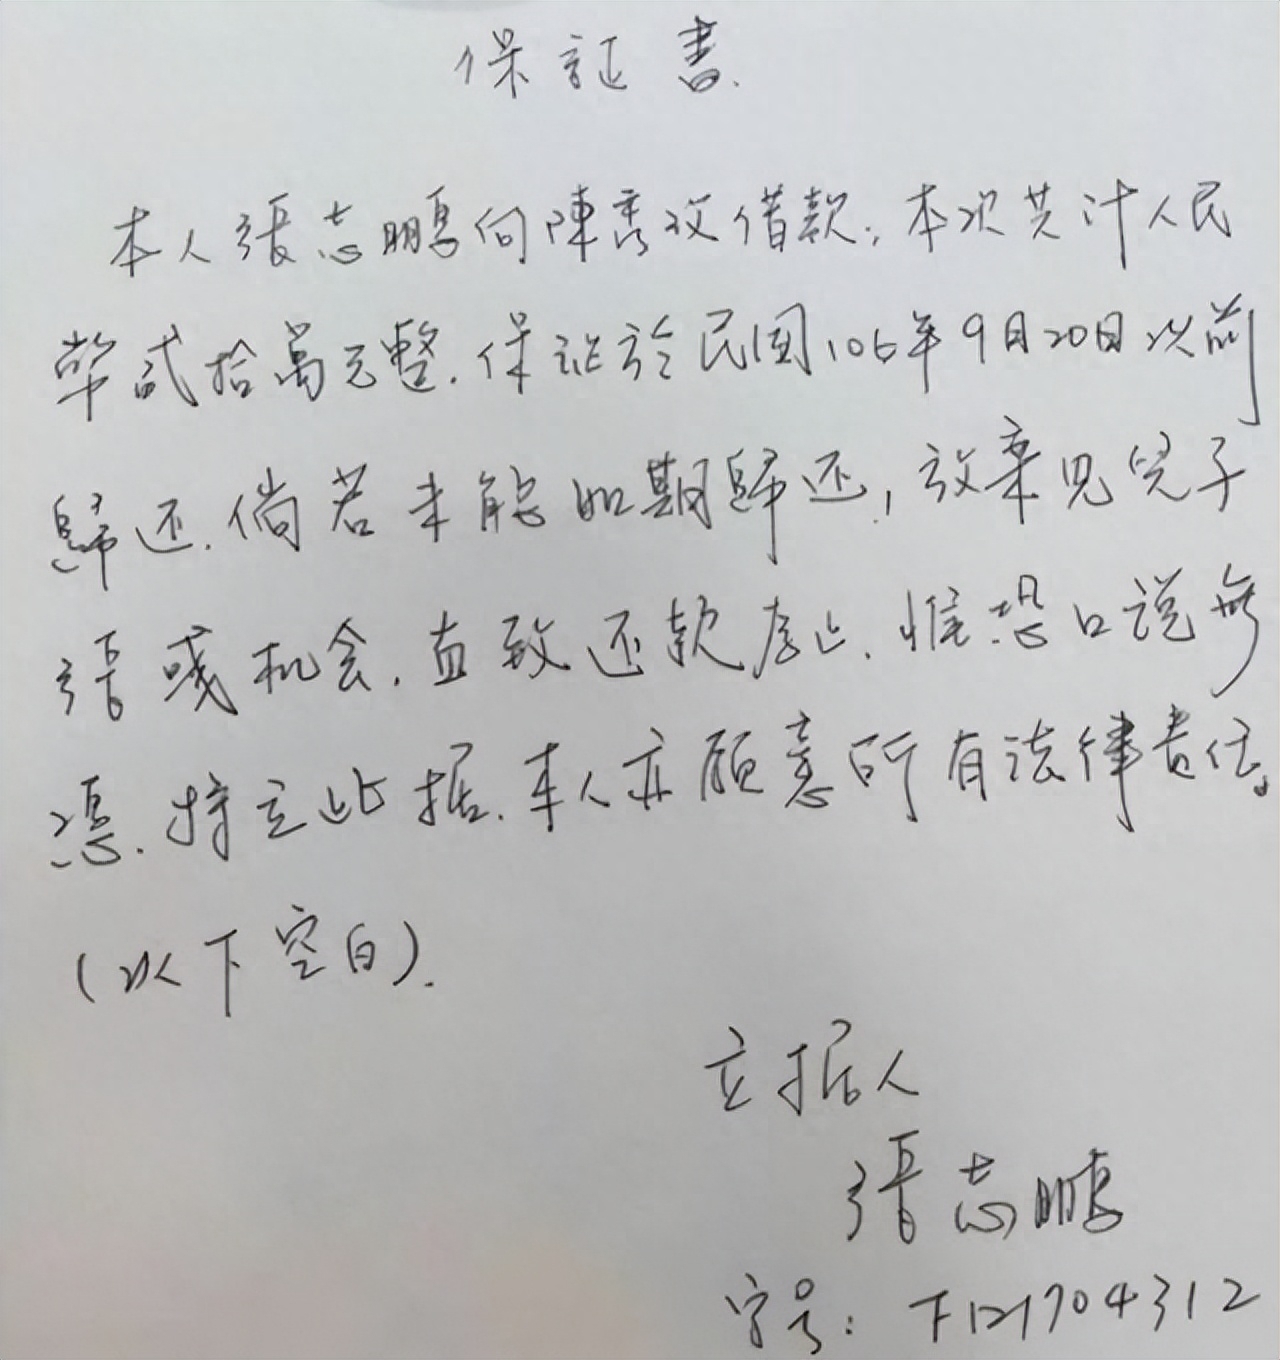 保証書.
本人張志鵬向陳秀玫借款,本次共计人民
幣貳拾萬元整.保証於民國106年9月20日以前
歸还.倘若未能如期歸还,放棄見兒子
張
机会.直致还款為止.惟恐口说無
憑.特立此据.本人亦願意所有法律责任。
(以下空白).
立据人
張志鵬
字号:F121704312